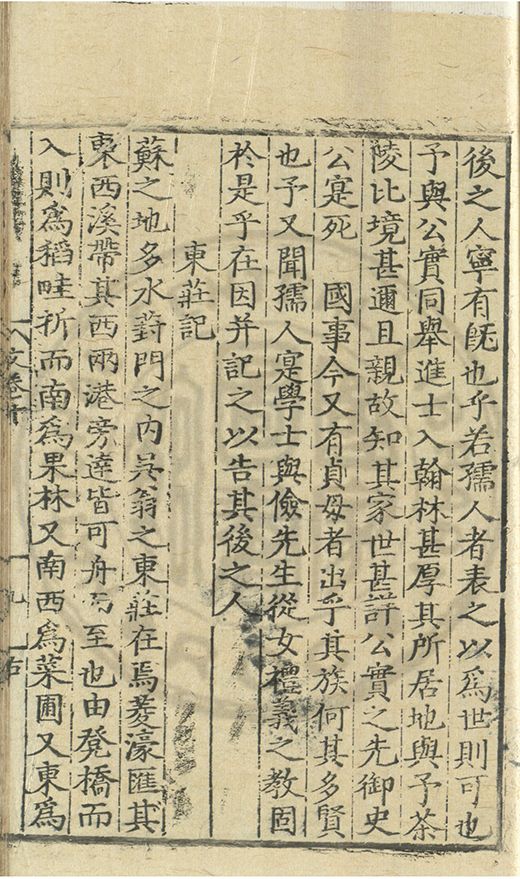 後之人寧有旣也乎若孺人者表之以爲世則可也
予與公實同舉進士入翰林甚厚其所居地與予茶
陵比境甚邇且親故知其家世甚詳公實之先御史
公寔死 國事今又有貞母者出乎其族何其多賢
也予又聞孺人寔學士與儉先生從女禮義之教固
於是乎在因并記之以告其後之人
東莊記
蘇之地多水葑門之內吳翁之東莊在焉菱濠匯其
東西溪帶其西兩港旁達皆可舟而至也由凳橋而
入則爲稻畦折而南爲果林又南西爲菜圃又東爲
文卷